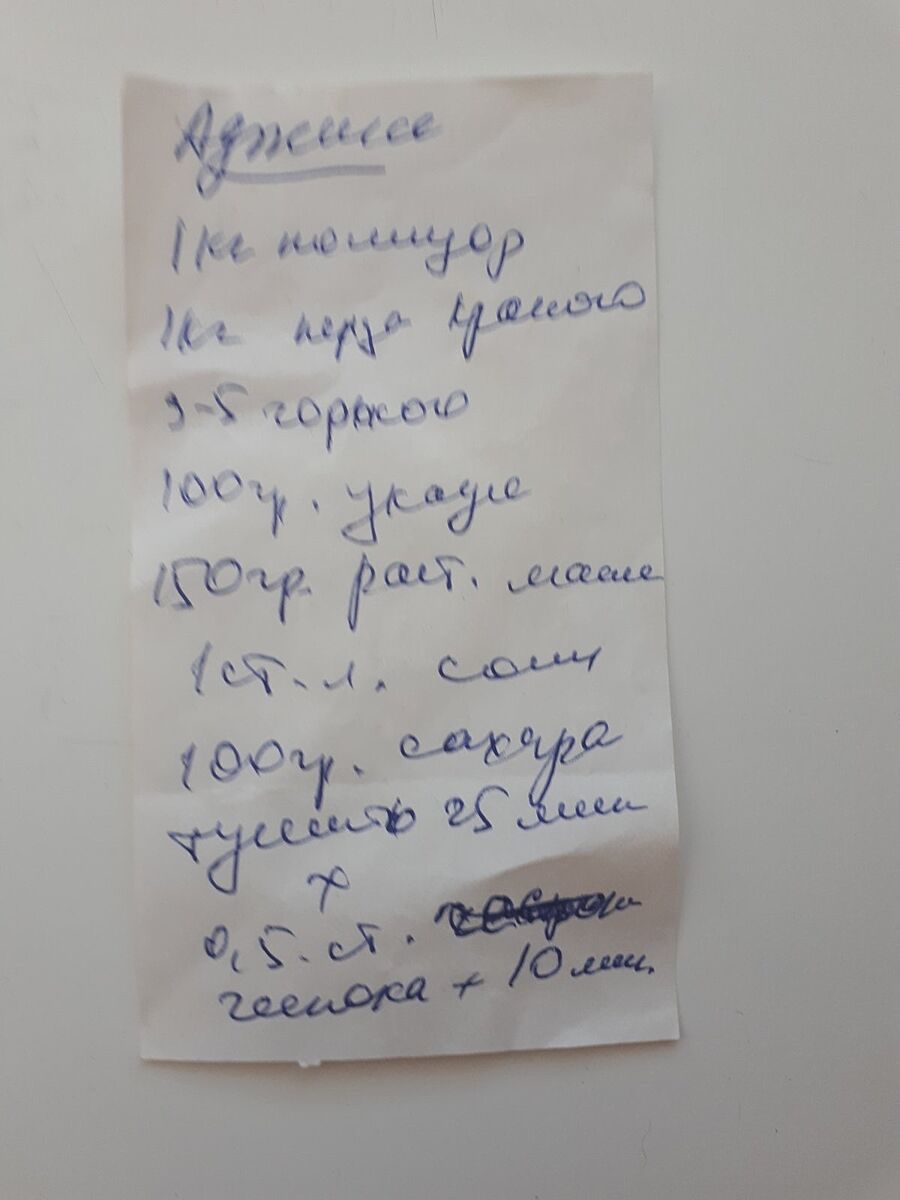 Аджика
1 кг помидор
1 кг перца красного
3-5 горького
100 гр. уксуса
150 гр. раст. масла
1 ст. л. соли
100 гр. сахара
тушить 25 мин
+
0,5. ст.
чеснока + 10 мин.